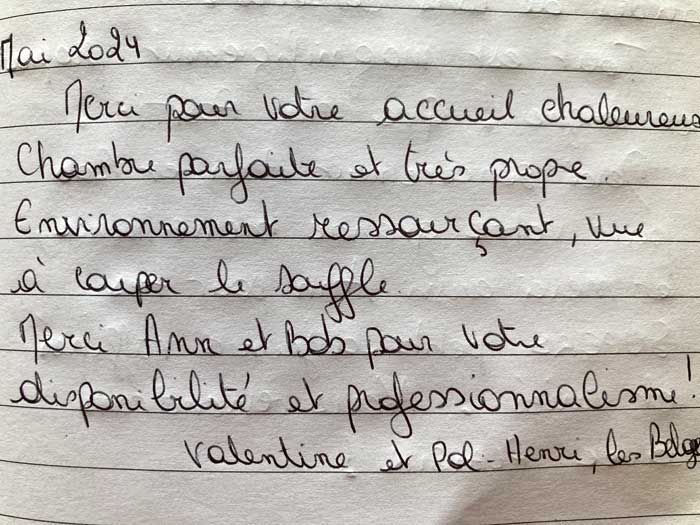 Mai 2024
Merci pour votre accueil chaleureux
Chambre parfaite et très propre.
Environnement ressourçant, vue
à couper le souffle.
Merci Ann et Bob pour votre
disponibilité et professionnalisme!
Valentine et Pol-Henri, les Belge